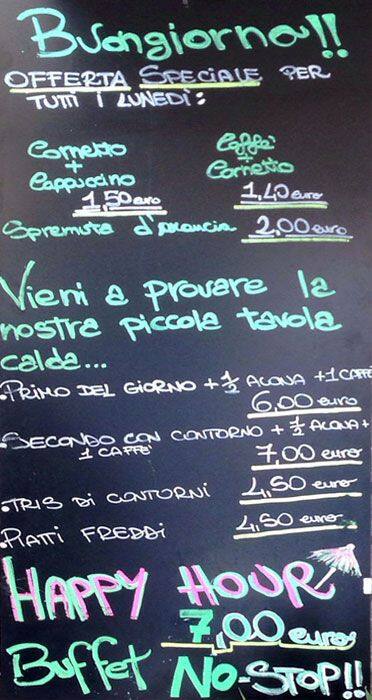 Buongiorno!!
OFFERTA SPECIALE PER
TUTTI I LUNEDÌ:
Cornetto
+
Cappuccino
1,50 euro
Caffè
+
Cornetto
1,40 euro
Spremuta d'arancia 2,00 euro
Vieni a provare la
nostra piccola tavola
calda...
.PRIMO DEL GIORNO + 1/2 ACQUA + 1 CAFFÈ
6,00 euro
.SECONDO CON CONTORNO + 1/2 ACQUA +
1 CAFFÈ
7,00 euro
.TRIS DI CONTORNI 4,50 euro
.PIATTI FREDDI 4,50 euro
HAPPY HOUR
7,00 euro
Buffet NO-STOP!!